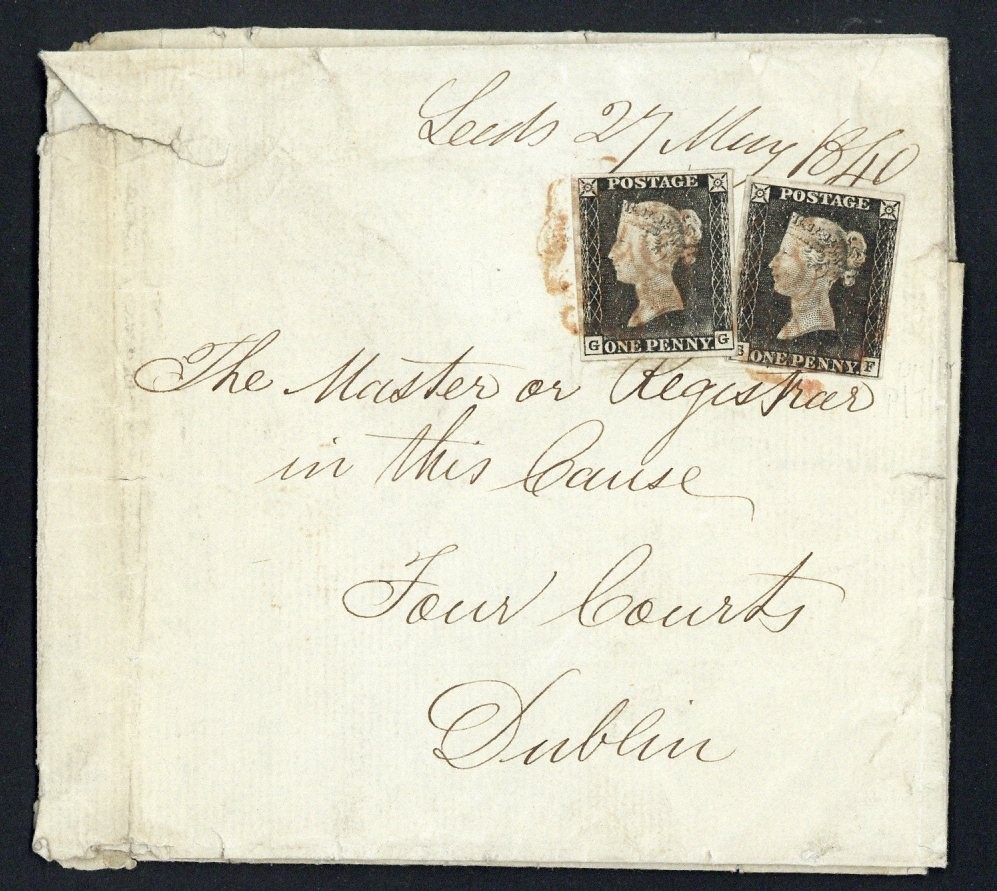 Leeds 27 May 1840
POSTAGE
G ONE PENNY G
POSTAGE
ONE PENNY F
The Master or Registrar
in this Cause
Four Courts
Dublin